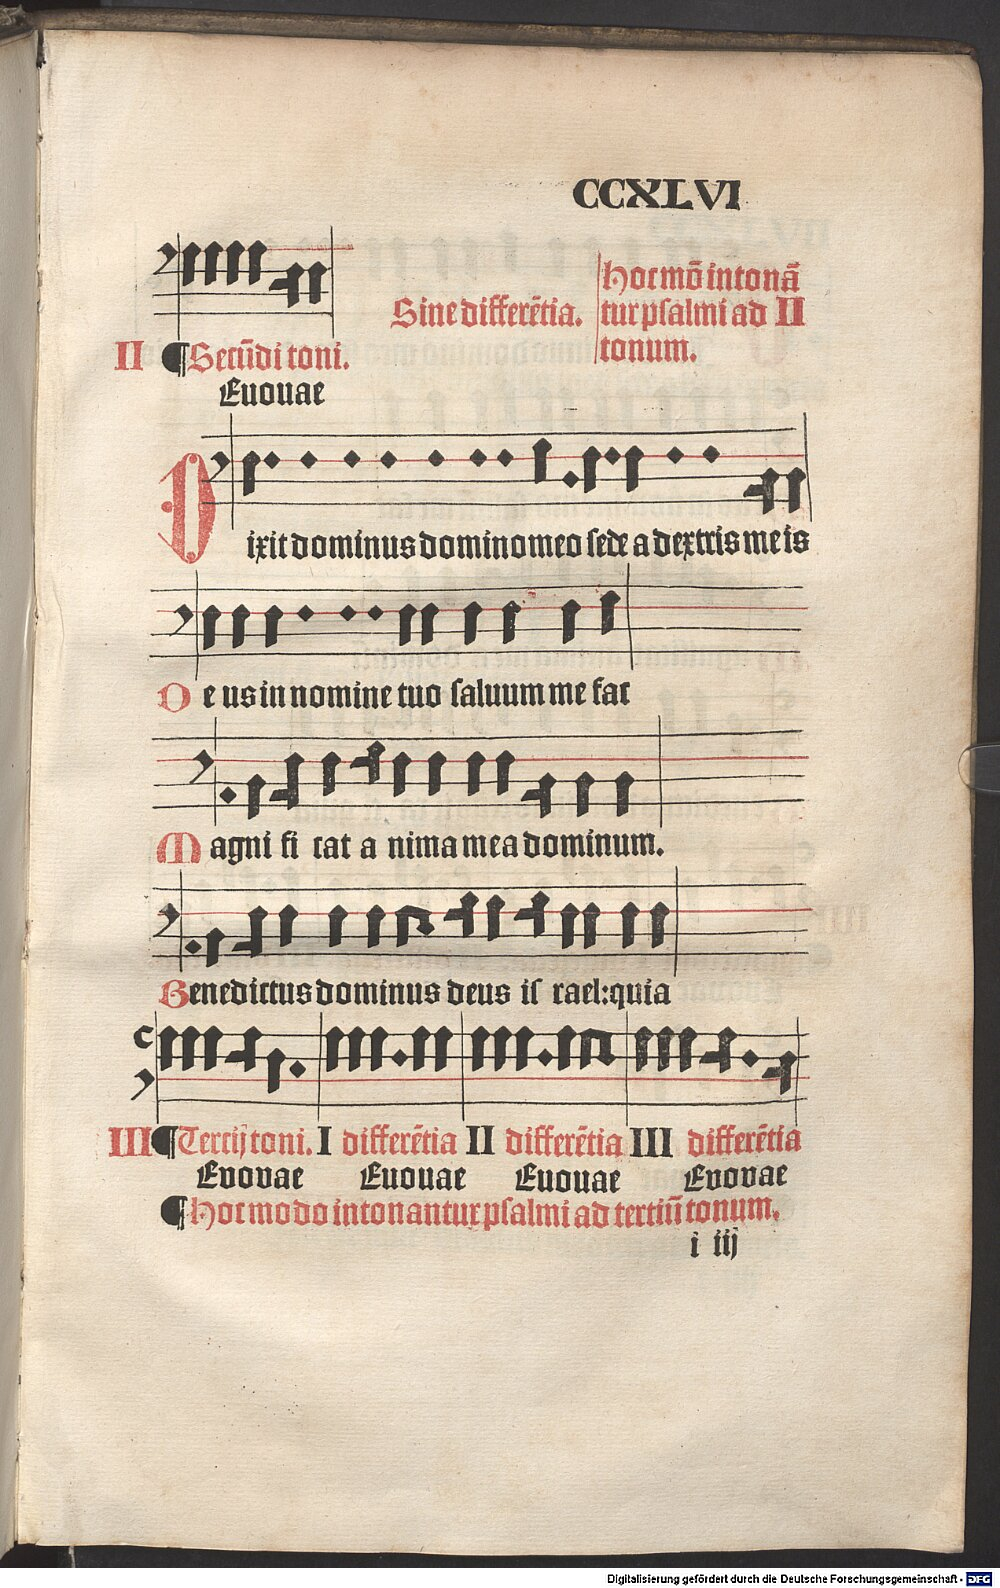 CCXLVI
Sine differētia.
hoc mō intonā
tur psalmi ad II
tonum.
II ¶ Secūdi toni.
Euouae
Dixit dominus domino meo sede a dextris meis
De us in nomine tuo saluum me fac
Magni fi cat a nima mea dominum.
Benedictus dominus deus is rael: quia
III ¶ Tercij toni. I differētia II differētia III differētia
Euouae Euouae Euouae Euouae
¶ hoc modo intonantur psalmi ad tertiū tonum.
i iij
Digitalisierung gefördert durch die Deutsche Forschungsgemeinschaft - DFG